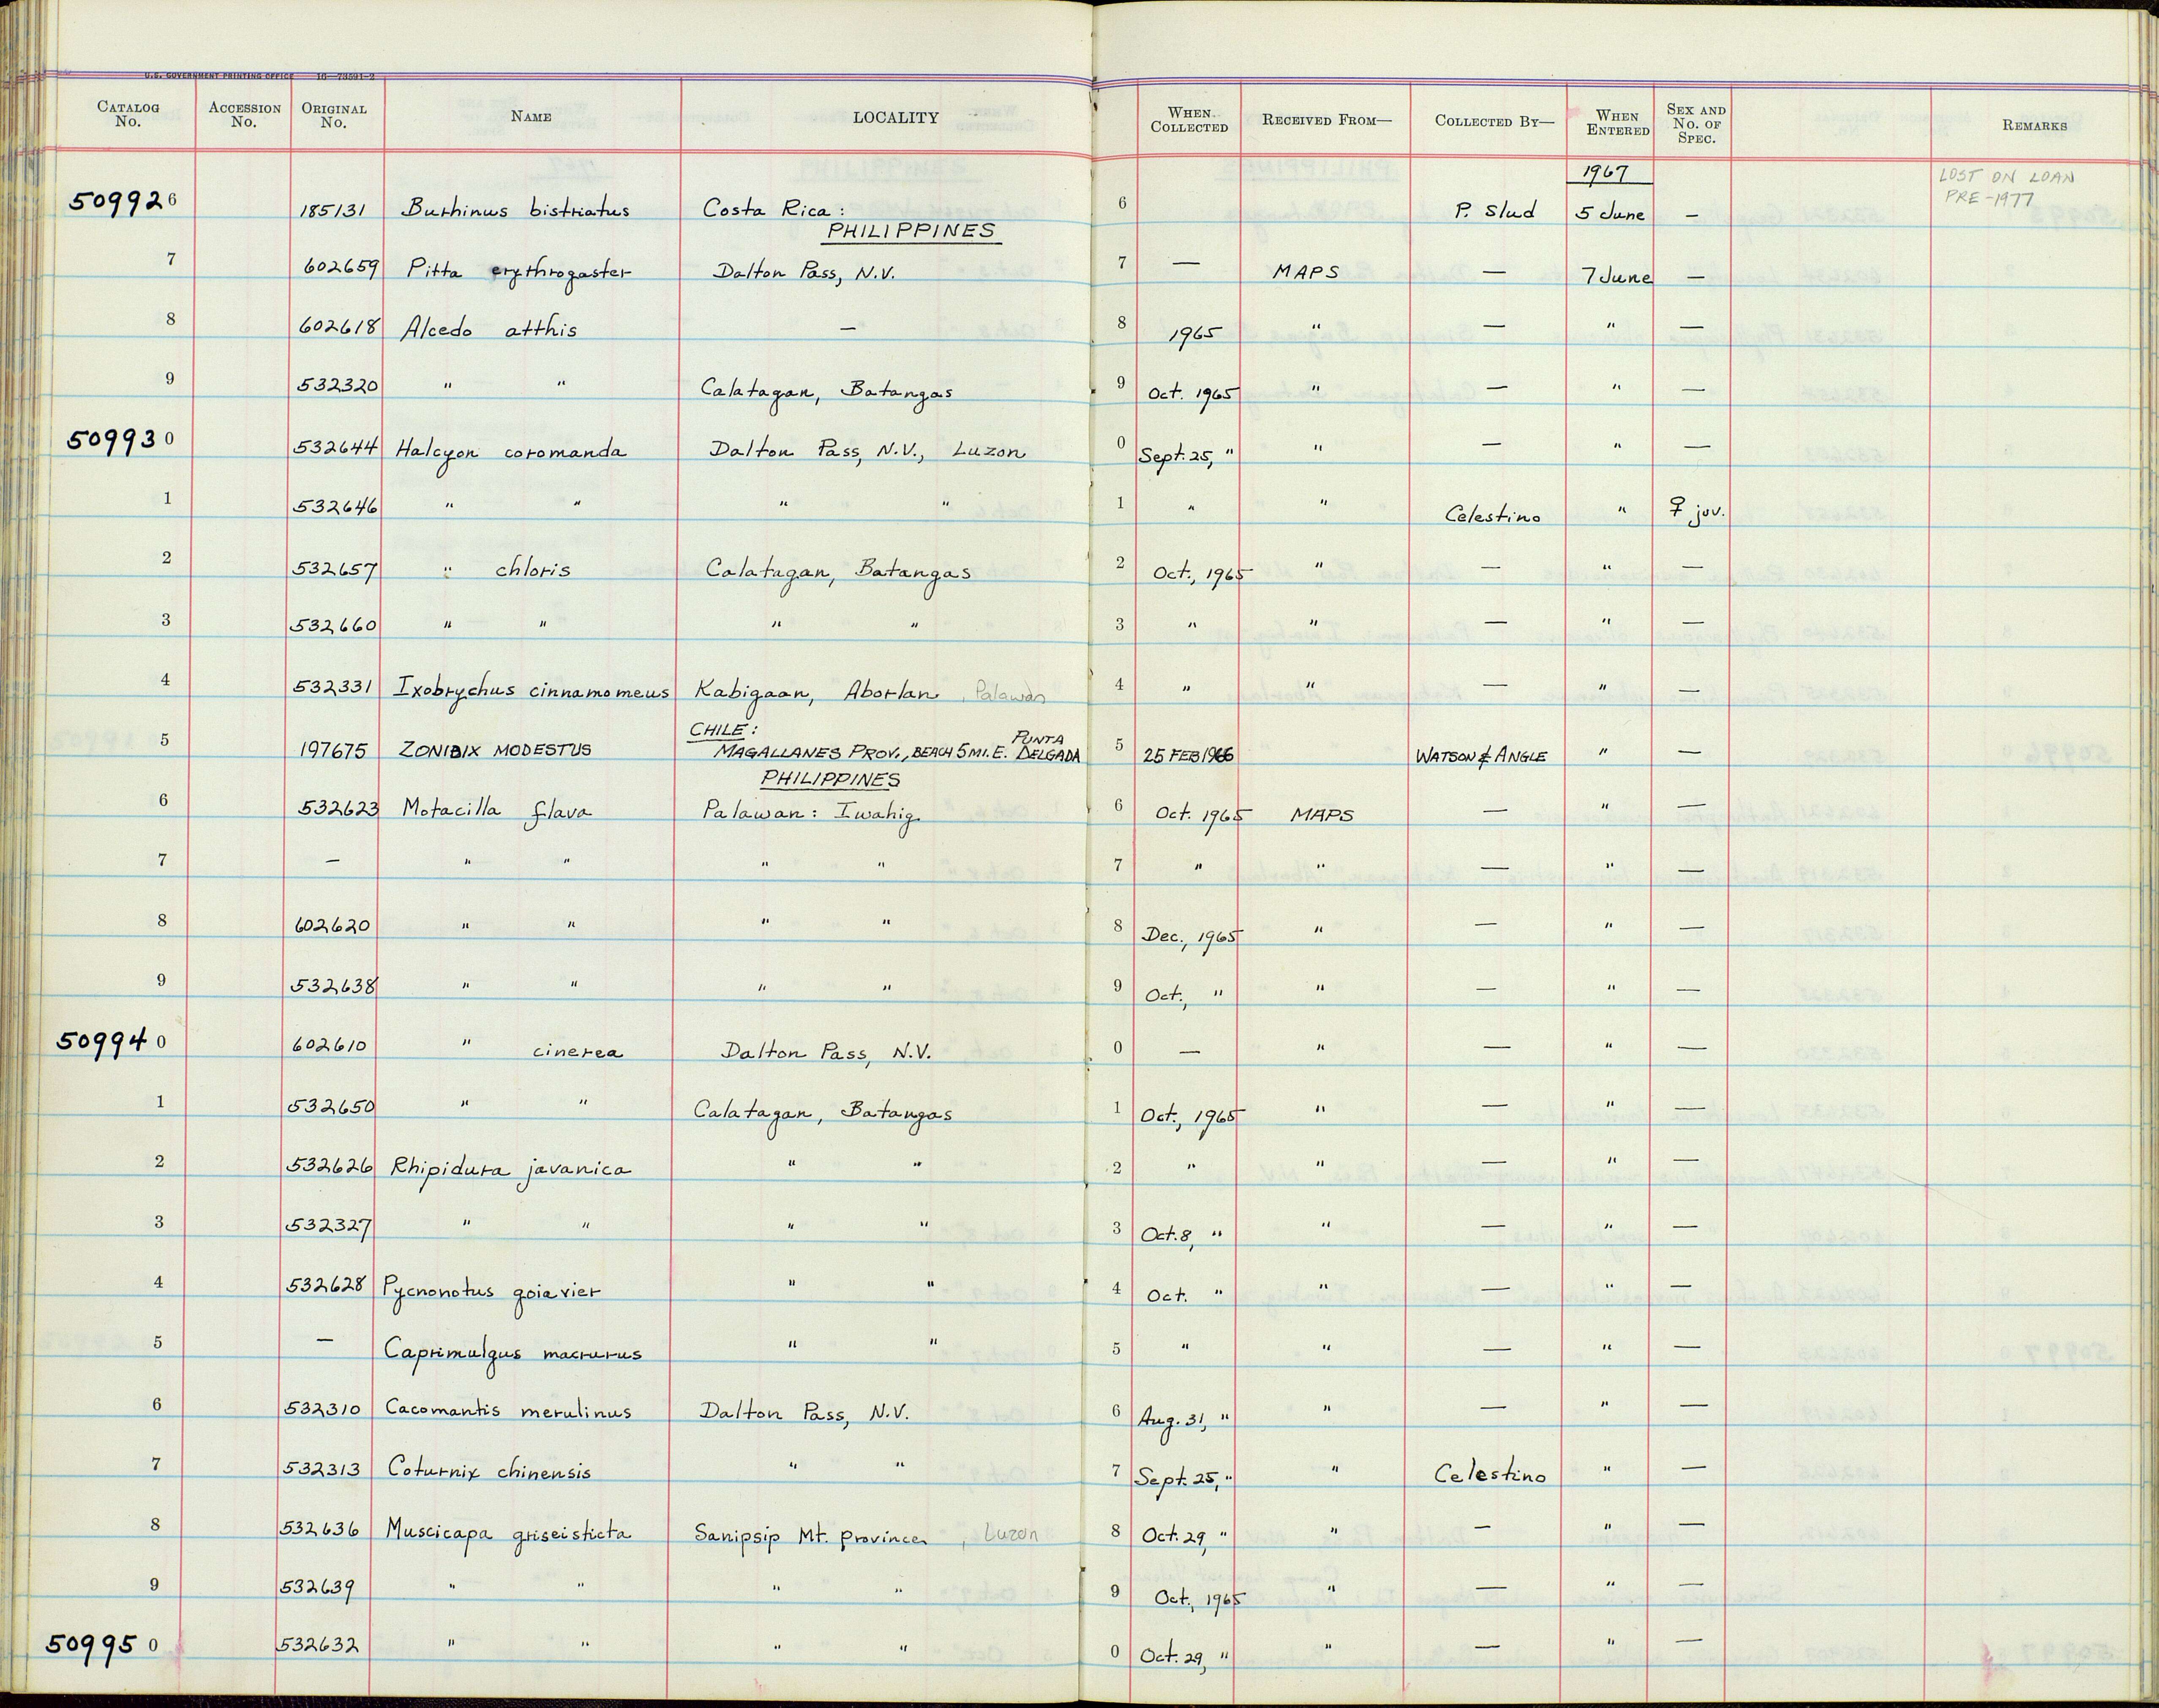 U.S. GOVERNMENT PRINTING OFFICE 16—73591-2
CATALOG No. ACCESSION No. ORIGINAL No. NAME LOCALITY WHEN COLLECTED RECEIVED FROM— COLLECTED BY— WHEN ENTERED SEX AND No. OF SPEC. REMARKS
1967 LOST ON LOAN
PRE-1977
509926 185131 Burhinus bistriatus Costa Rica: 6 P. Slud 5 June —
PHILIPPINES
7 602659 Pitta erythrogaster Dalton Pass, N.V. 7 — MAPS — 7 June —
8 602618 Alcedo atthis — 8 1965 " — " —
9 532320 " " Calatagan, Batangas 9 Oct. 1965 " — " —
509930 532644 Halcyon coromanda Dalton Pass, N.V., Luzon 0 Sept. 25, " " — " —
1 532646 " " " " 1 " " Celestino " ♀ juv.
2 532657 " chloris Calatagan, Batangas 2 Oct., 1965 " — " —
3 532660 " " " " 3 " " — " —
4 532331 Ixobrychus cinnamomeus Kabigaan, Aborlan, Palawan 4 " " — " —
CHILE:
5 197675 ZONIBIX MODESTUS MAGALLANES PROV., BEACH 5 MI. E. PUNTA DELGADA 5 25 FEB 1966 WATSON & ANGLE " —
PHILIPPINES
6 532623 Motacilla flava Palawan: Iwahig 6 Oct. 1965 MAPS — " —
7 — " " " " 7 " " — " —
8 602620 " " " " 8 Dec., 1965 " — " —
9 532638 " " " " 9 Oct., " " — " —
509940 602610 " cinerea Dalton Pass, N.V. 0 — " — " —
1 532650 " " Calatagan, Batangas 1 Oct., 1965 " — " —
2 532626 Rhipidura javanica " " 2 " " — " —
3 532327 " " " " 3 Oct. 8, " " — " —
4 532628 Pycnonotus goiavier " " 4 Oct. " " — " —
5 — Caprimulgus macrurus " " 5 " " — " —
6 532310 Cacomantis merulinus Dalton Pass, N.V. 6 Aug. 31, " " — " —
7 532313 Coturnix chinensis " " 7 Sept. 25, " " Celestino " —
8 532636 Muscicapa griseisticta Sanipsip Mt. province, Luzon 8 Oct. 29, " " — " —
9 532639 " " " " 9 Oct., 1965 " — " —
509950 532632 " " " " 0 Oct. 29, " " — " —